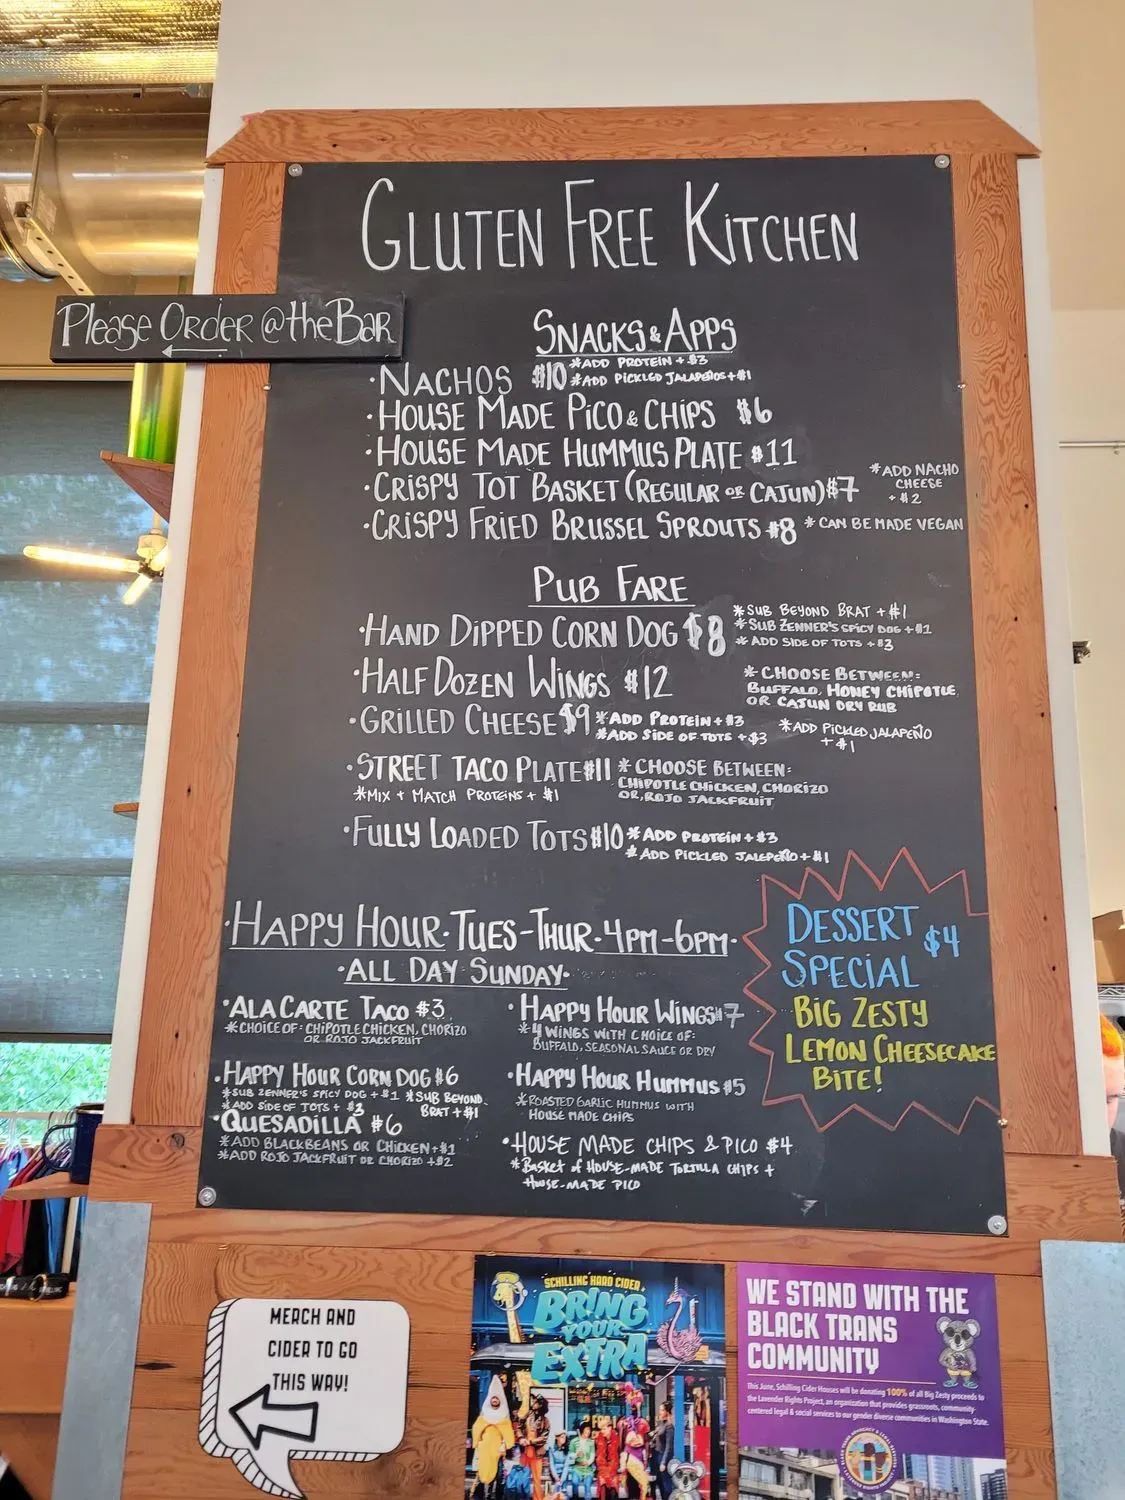 GLUTEN FREE KITCHEN
Please Order @ the Bar
SNACKS & APPS
·NACHOS $10 *ADD PROTEIN + $3
*ADD PICKLED JALAPEÑOS + $1
·HOUSE MADE PICO & CHIPS $6
·HOUSE MADE HUMMUS PLATE $11
·CRISPY TOT BASKET (REGULAR OR CAJUN) $7 *ADD NACHO
CHEESE
+ $2
·CRISPY FRIED BRUSSEL SPROUTS $8 *CAN BE MADE VEGAN
PUB FARE
·HAND DIPPED CORN DOG $8 *SUB BEYOND BRAT + $1
*SUB ZENNER'S SPICY DOG + $1
*ADD SIDE OF TOTS + $3
·HALF DOZEN WINGS $12 *CHOOSE BETWEEN:
BUFFALO, HONEY CHIPOTLE
OR CAJUN DRY RUB
·GRILLED CHEESE $9 *ADD PROTEIN + $3 *ADD PICKLED JALAPEÑO
*ADD SIDE OF TOTS + $3 + $1
·STREET TACO PLATE $11 *CHOOSE BETWEEN:
*MIX + MATCH PROTEINS + $1 CHIPOTLE CHICKEN, CHORIZO
OR, ROJO JACKFRUIT
·FULLY LOADED TOTS $10 *ADD PROTEIN + $3
*ADD PICKLED JALEPEÑO + $1
·HAPPY HOUR·TUES-THUR·4PM-6PM·
·ALL DAY SUNDAY·
·ALA CARTE TACO $3
*CHOICE OF: CHIPOTLE CHICKEN, CHORIZO
OR ROJO JACKFRUIT
·HAPPY HOUR CORN DOG $6
*SUB ZENNER'S SPICY DOG + $1 *SUB BEYOND
*ADD SIDE OF TOTS + $3 BRAT + $1
·QUESADILLA $6
*ADD BLACKBEANS OR CHICKEN + $1
*ADD ROJO JACKFRUIT OR CHORIZO + $2
·HAPPY HOUR WINGS $7
*4 WINGS WITH CHOICE OF:
BUFFALO, SEASONAL SAUCE OR DRY
·HAPPY HOUR HUMMUS $5
*ROASTED GARLIC HUMMUS WITH
HOUSE MADE CHIPS
·HOUSE MADE CHIPS & PICO $4
*BASKET of HOUSE-MADE TORTILLA CHIPS +
HOUSE-MADE PICO
DESSERT $4
SPECIAL
BIG ZESTY
LEMON CHEESECAKE
BITE!
MERCH AND
CIDER TO GO
THIS WAY!
SCHILLING HARD CIDER
BRING
YOUR
EXTRA
WE STAND WITH THE
BLACK TRANS
COMMUNITY
This June, Schilling Cider Houses will be donating 100% of all Big Zesty proceeds to
the Lavender Rights Project, an organization that provides grassroots, community-
centered legal & social services to our gender diverse communities in Washington State.